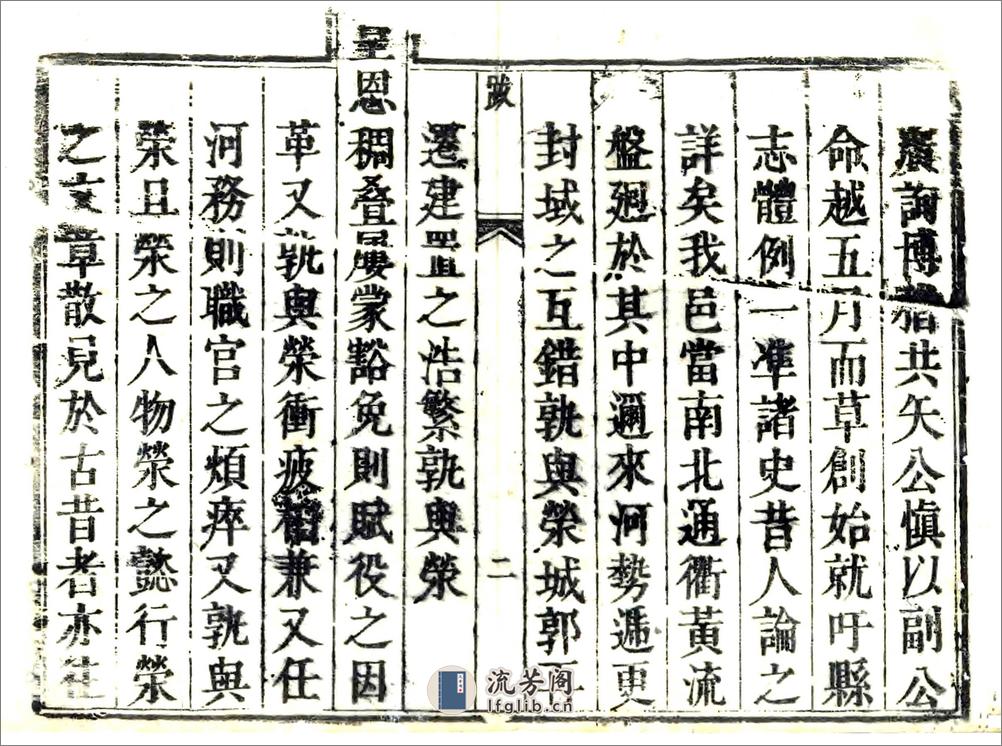 廣詢博稽共矢公慎以副公
命越五月而草創始就吁縣
志體例一準諸史昔人論之
詳矣我邑當南北通衢黃流
盤廻於其中邇來河勢遞更
封域之互錯孰與滎城郭
跋
二
遷建置之浩繁孰與滎
皇恩稠叠屢蒙豁免則賦役之因
革又孰與滎衝疲相兼又任
河務則職官之煩瘁又孰與
滎且滎之人物滎之懿行滎
之文章散見於古昔者亦往
流芳阁
lfglib.cn